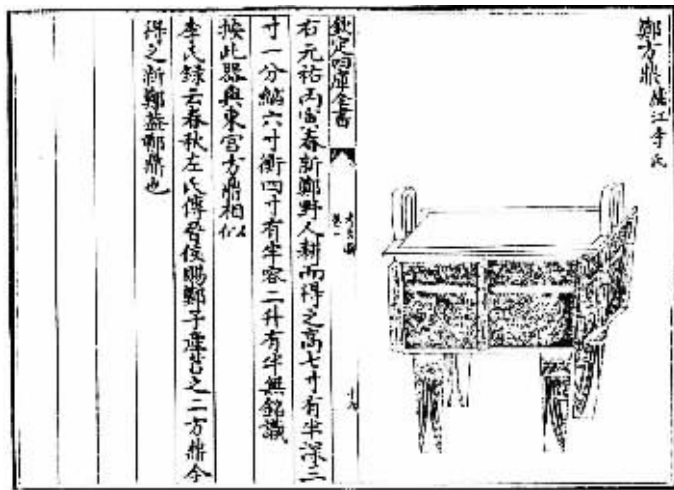 鄭方鼎廬江李氏
欽定四庫全書
卷一
右元祐丙寅春新鄭野人耕而得之高七寸有半深三
寸一分縮六寸衡四寸有半容二升有半無銘識
按此器與東宮方鼎相似
李氏録云春秋左氏傳晉侯賜鄭子產莒之二方鼎今
得之新鄭葢鄭鼎也